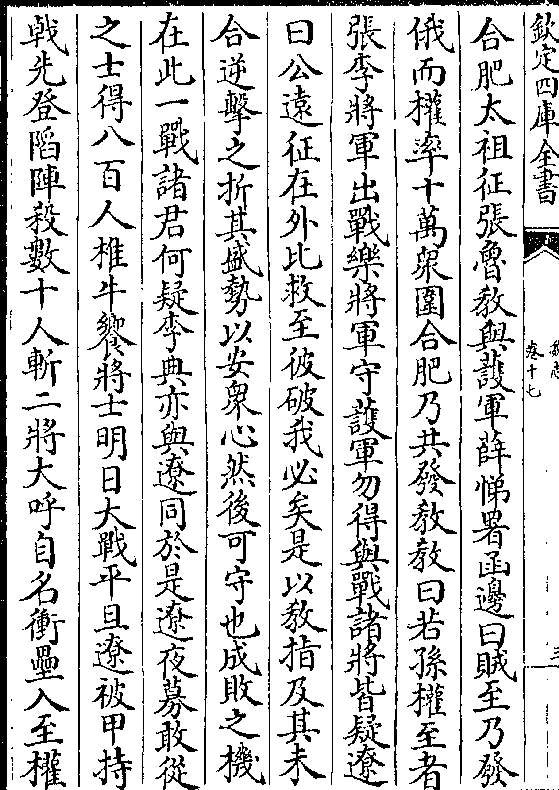 欽定四庫全書
卷十七
合肥太祖征張魯教與護軍薛悌署函邊曰賊至乃發
俄而權率十萬衆圍合肥乃共發教教曰若孫權至者
張李將軍出戰樂將軍守護軍勿得與戰諸將皆疑遼
曰公遠征在外比救至彼破我必矣是以教指及其未
合逆擊之折其盛勢以安衆心然後可守也成敗之機
在此一戰諸君何疑李典亦與遼同於是遼夜募敢從
之士得八百人椎牛饗將士明日大戰平旦遼被甲持
戟先登陷陣殺數十人斬二將大呼自名衝壘入至權